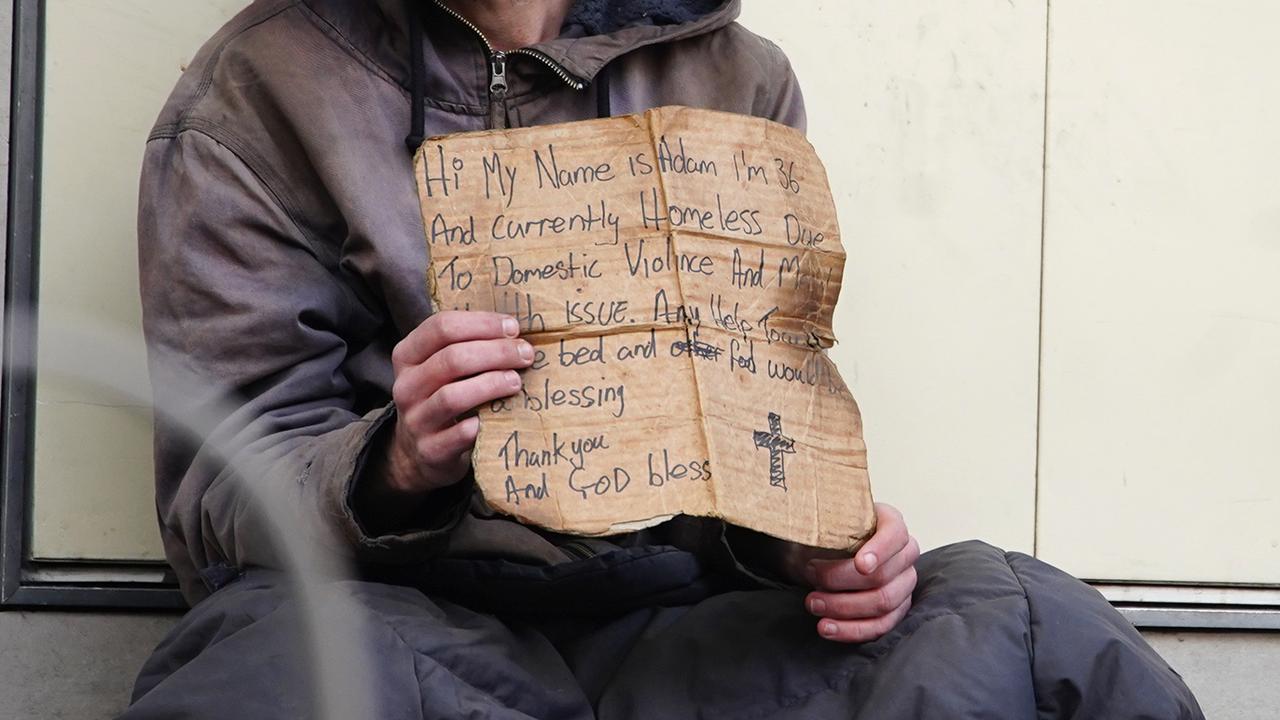 Hi My Name is Adam I'm 36
And Currently Homeless Due
To Domestic Violince And
ISSUE. Any Help
bed and food would
a blessing
Thankyou
And GOD bless